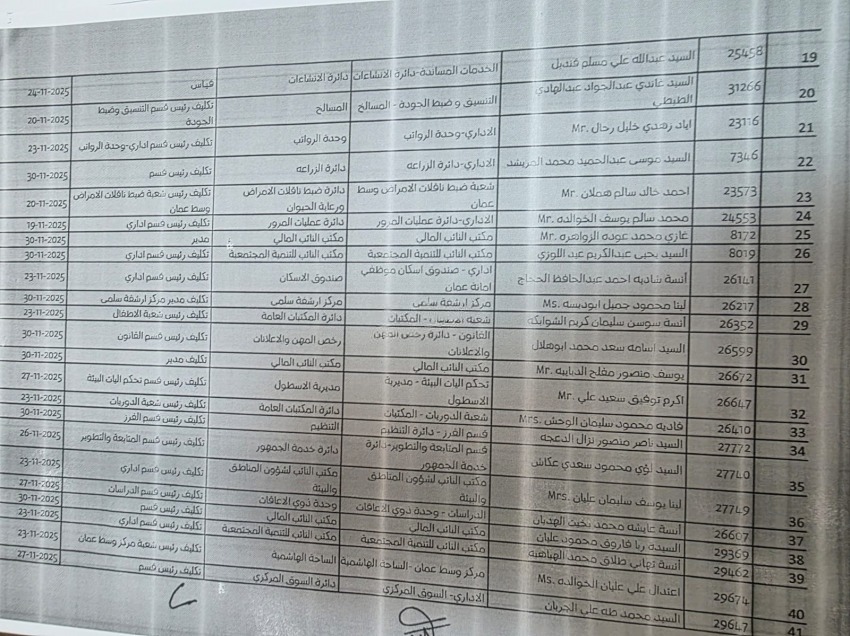 19 25458 السيد عبدالله علي مسلم قنديل الخدمات المساندة-دائرة الانشاءات دائرة الانشاءات قياس 24-11-2025
20 31266 السيد غاندي عبدالجواد عبدالهادي الطيطي التنسيق و ضبط الجودة - المسالخ المسالخ تكليف رئيس قسم التنسيق وضبط الجودة 20-11-2025
21 23116 اياد زهدي خليل رحال Mr. الاداري-وحدة الرواتب وحدة الرواتب تكليف رئيس قسم اداري-وحدة الرواتب 23-11-2025
22 7346 السيد موسى عبدالحميد محمد المريشد الاداري-دائرة الزراعه دائرة الزراعه تكليف رئيس قسم 30-11-2025
23 23573 احمد خالد سالم هملان Mr. شعبة ضبط ناقلات الامراض وسط عمان دائرة ضبط ناقلات الامراض ورعاية الحيوان تكليف رئيس شعبة ضبط ناقلات الامراض وسط عمان 20-11-2025
24 24553 محمد سالم يوسف الخوالده Mr. الاداري-دائرة عمليات المرور دائرة عمليات المرور تكليف رئيس قسم اداري 19-11-2025
25 8172 غازي محمد عوده الزواهره Mr. مكتب النائب المالي مكتب النائب المالي مدير 30-11-2025
26 8019 السيد يحيى عبدالكريم عبد اللوزي مكتب النائب للتنمية المجتمعية مكتب النائب للتنمية المجتمعية تكليف رئيس قسم اداري 30-11-2025
27 26141 آنسة شاديه احمد عبدالحافظ الحجاج اداري - صندوق اسكان موظفي امانة عمان صندوق الاسكان تكليف رئيس قسم اداري 23-11-2025
28 26217 لينا محمود جميل ابوديسه Ms. مركز ارشفة سلمى مركز ارشفة سلمى تكليف مدير مركز ارشفة سلمى 30-11-2025
29 26352 آنسة سوسن سليمان كريم الشوابكه شعبة - المكتبات دائرة المكتبات العامة تكليف رئيس شعبة الاطفال 23-11-2025
30 26599 السيد اسامه سعد محمد ابوهلال القانون - دائرة رخص المهن والاعلانات رخص المهن والاعلانات تكليف رئيس قسم القانون 30-11-2025
31 26672 يوسف منصور مفلح الدبايبه Mr. مكتب النائب المالي مكتب النائب المالي تكليف مدير 30-11-2025
32 26647 اكرم توفيق سعيد علي Mr. تحكم اليات البيئة - مديرية الاسطول مديرية الاسطول تكليف رئيس قسم تحكم اليات البيئة 27-11-2025
33 26410 فاديه محمود سليمان الوحش Mrs. شعبة الدوريات - المكتبات دائرة المكتبات العامة تكليف رئيس شعبة الدوريات 23-11-2025
34 27772 السيد ناصر منصور نزال الدعجه قسم الفرز - دائرة التنظيم التنظيم تكليف رئيس قسم الفرز 30-11-2025
35 27740 السيد لؤي محمود سعدي عكاش قسم المتابعة والتطوير-دائرة خدمة الجمهور دائرة خدمة الجمهور تكليف رئيس قسم المتابعة والتطوير 26-11-2025
36 27749 لينا يوسف سليمان عليان Mrs. مكتب النائب لشؤون المناطق والبيئة مكتب النائب لشؤون المناطق والبيئة تكليف رئيس قسم اداري 23-11-2025
37 26607 آنسة عايشه محمد بخيت الهديان الدراسات - وحدة ذوي الاعاقات وحدة ذوي الاعاقات تكليف رئيس قسم الدراسات 27-11-2025
38 29369 السيدة ربا فاروق محمود عليان مكتب النائب المالي مكتب النائب المالي تكليف رئيس قسم 30-11-2025
39 29462 آنسة تهاني طلاق محمد الهباهبه مكتب النائب للتنمية المجتمعية مكتب النائب للتنمية المجتمعية تكليف رئيس قسم اداري 23-11-2025
40 29674 اعتدال علي عليان الخوالده Ms. مركز وسط عمان - الساحة الهاشمية الساحة الهاشمية تكليف رئيس شعبة مركز وسط عمان 23-11-2025
41 29647 السيد محمد طه علي الجريان الاداري- السوق المركزي دائرة السوق المركزي تكليف رئيس قسم 27-11-2025